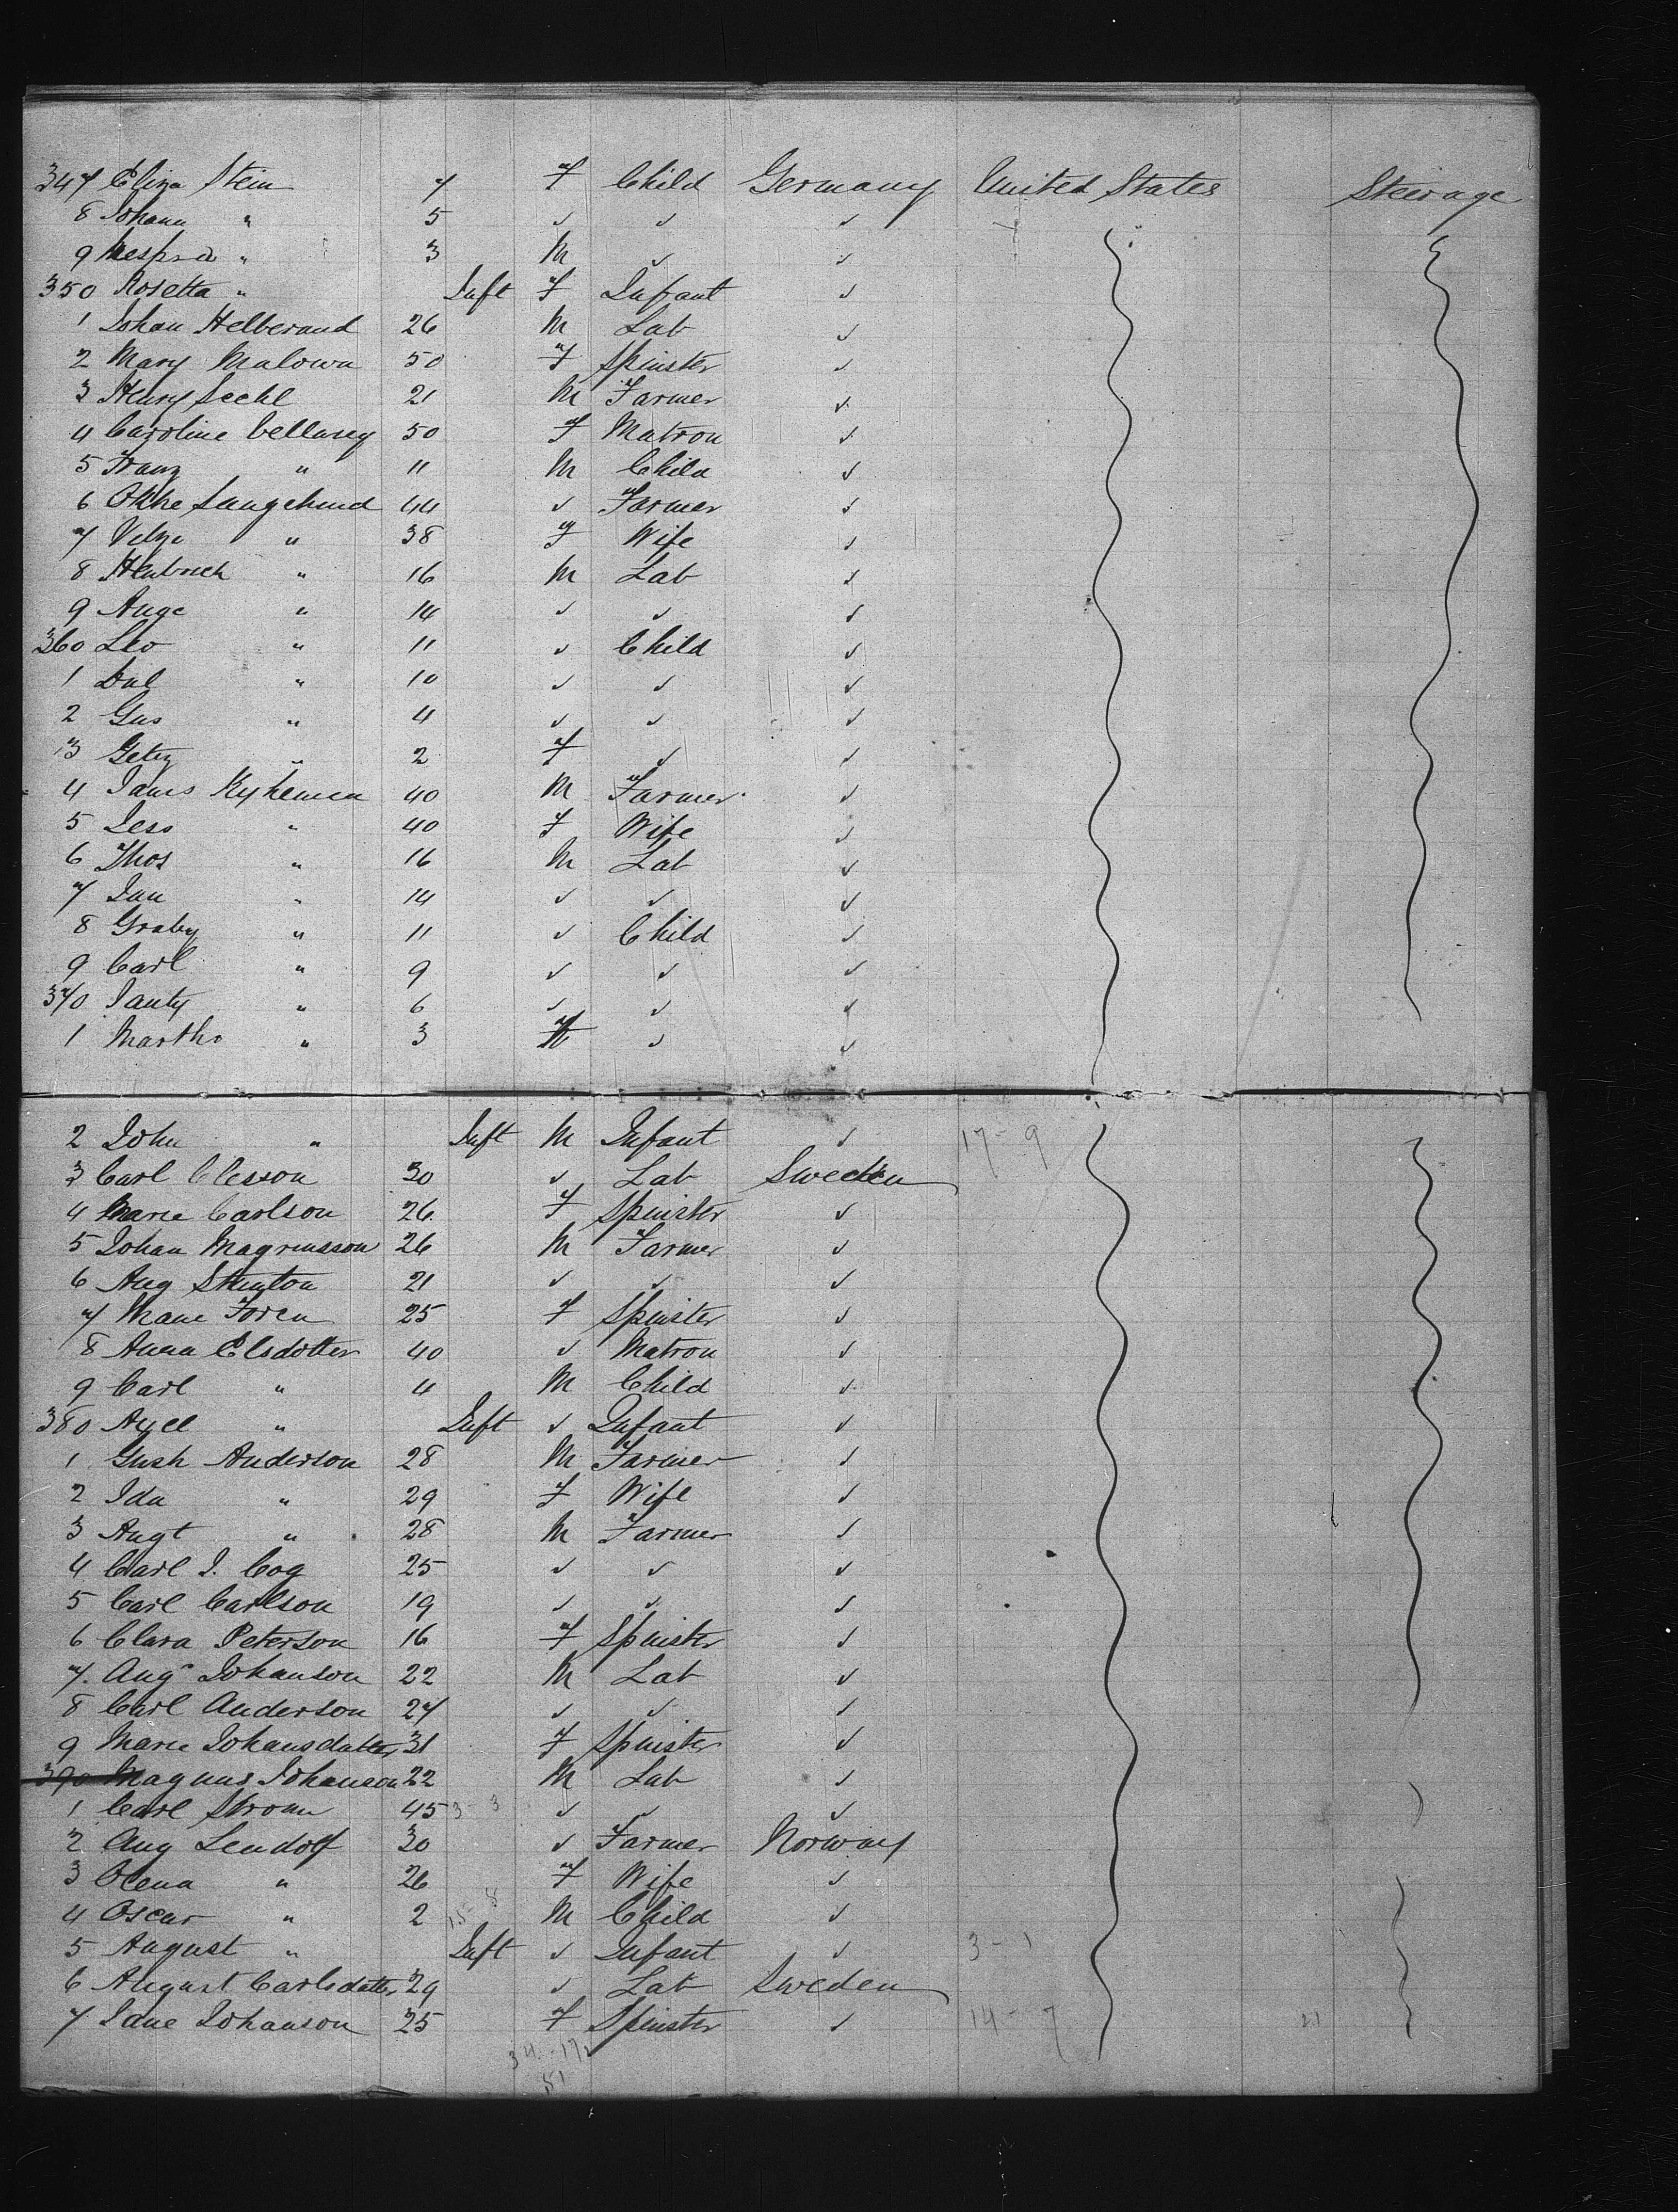 347 Eliza Stein 7 F Child Germany United States Steerage
8 Johann " 5 ✓ ✓ ✓
9 " 3 M ✓ ✓
350 Rosetta " Inft F Infant ✓
1 Johan Helberand 26 M Lab ✓
2 Mary Malowa 50 F Spinster ✓
3 Henry Seehl 21 M Farmer ✓
4 Caroline Cellarey 50 F Matron ✓
5 Franz " 11 M Child ✓
6 Okke Langehund 44 ✓ Farmer ✓
7 " 38 F Wife ✓
8 " 16 M Lab ✓
9 Auge " 14 ✓ ✓ ✓
360 Leo " 11 ✓ Child ✓
1 " 10 ✓ ✓ ✓
2 Gus " 4 ✓ ✓ ✓
3 " 2 F ✓ ✓
4 Kyhemen 40 M Farmer ✓
5 Jess " 40 F Wife ✓
6 Thos " 16 M Lab ✓
7 Jan " 14 ✓ ✓ ✓
8 Graby " 11 ✓ Child ✓
9 Carl " 9 ✓ ✓ ✓
370 Janty " 6 ✓ ✓ ✓
1 Martha " 3 F ✓ ✓
2 John " Inft M Infant ✓ 17-9
3 Carl Clesson 30 ✓ Lab Sweden
4 Marie Carlson 26 F Spinster ✓
5 Johan Magnusson 26 M Farmer ✓
6 Aug 21 ✓ ✓ ✓
7 Foren 25 F Spinster ✓
8 Anna Elsdotter 40 ✓ Matron ✓
9 Carl " 4 M Child ✓
380 Axel " Inft ✓ Infant ✓
1 Gush Anderson 28 M Farmer ✓
2 Ida " 29 F Wife ✓
3 Augt " 28 M Farmer ✓
4 Carl J. Cog 25 ✓ ✓ ✓
5 Carl Carlson 19 ✓ ✓ ✓
6 Clara Peterson 16 F Spinster ✓
7 Aug Johanson 22 M Lab ✓
8 Carl Anderson 27 ✓ ✓ ✓
9 Marie Johansdatter 31 F Spinster ✓
390 Magnus Johanson 22 M Lab ✓
1 Carl Strom 45 3-3 ✓ ✓ ✓
2 Aug Lendolf 30 ✓ Farmer Norway
3 Olena " 26 F Wife ✓
4 Oscar " 2 15-8 M Child ✓
5 August " Inft ✓ Infant ✓ 3-1
6 August Carlsdatter 29 ✓ Lab Sweden
7 Jane Johanson 25 F Spinster ✓ 14-7 21
34-17
51